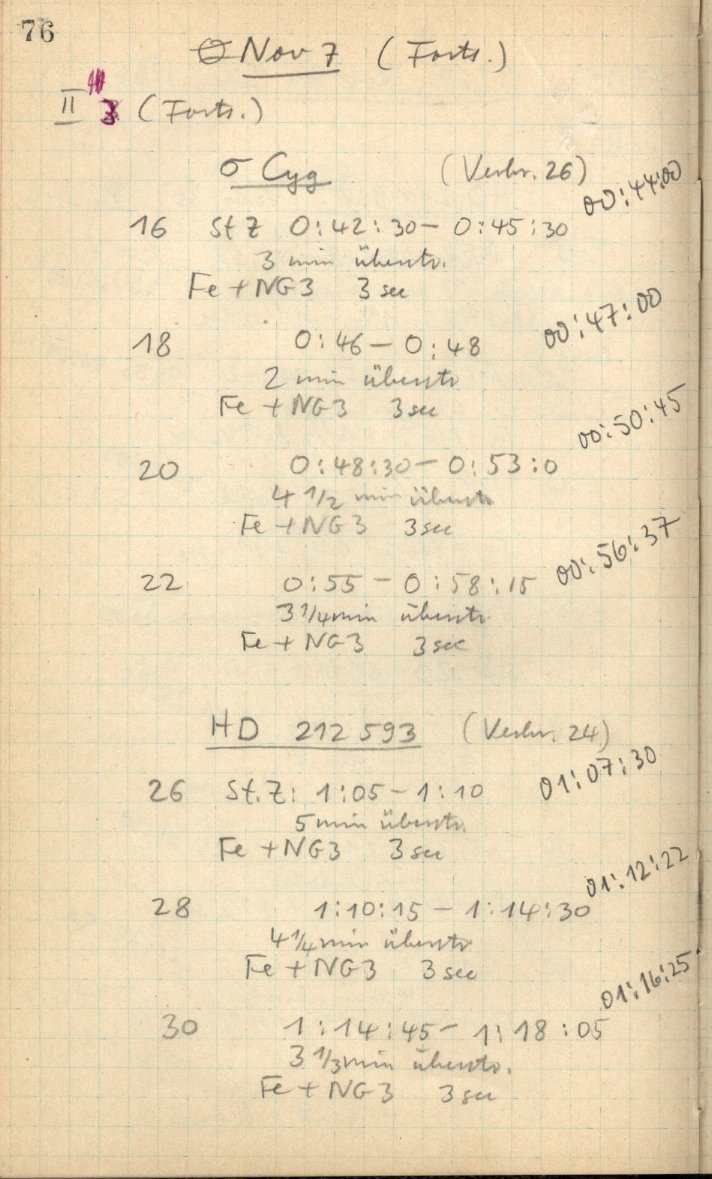 76
Nov 7 (Forts.)
II (Forts.)
σ Cyg (Verbr. 26)
00:44:00
16 St Z 0:42:30 – 0:45:30
3 min überstr.
Fe + NG3 3 sec
00:47:00
18 0:46 – 0:48
2 min überstr
Fe + NG3 3 sec
00:50:45
20 0:48:30 – 0:53:0
4 1/2 min überstr
Fe + NG3 3 sec
00:56:37
22 0:55 – 0:58:15
3 1/4 min überstr
Fe + NG3 3 sec
HD 212 593 (Verbr. 24)
01:07:30
26 St. Z: 1:05 – 1:10
5 min überstr.
Fe + NG3 3 sec
01:12:22
28 1:10:15 – 1:14:30
4 1/4 min überstr
Fe + NG3 3 sec
01:16:25
30 1:14:45 – 1:18:05
3 1/3 min überstr.
Fe + NG3 3 sec